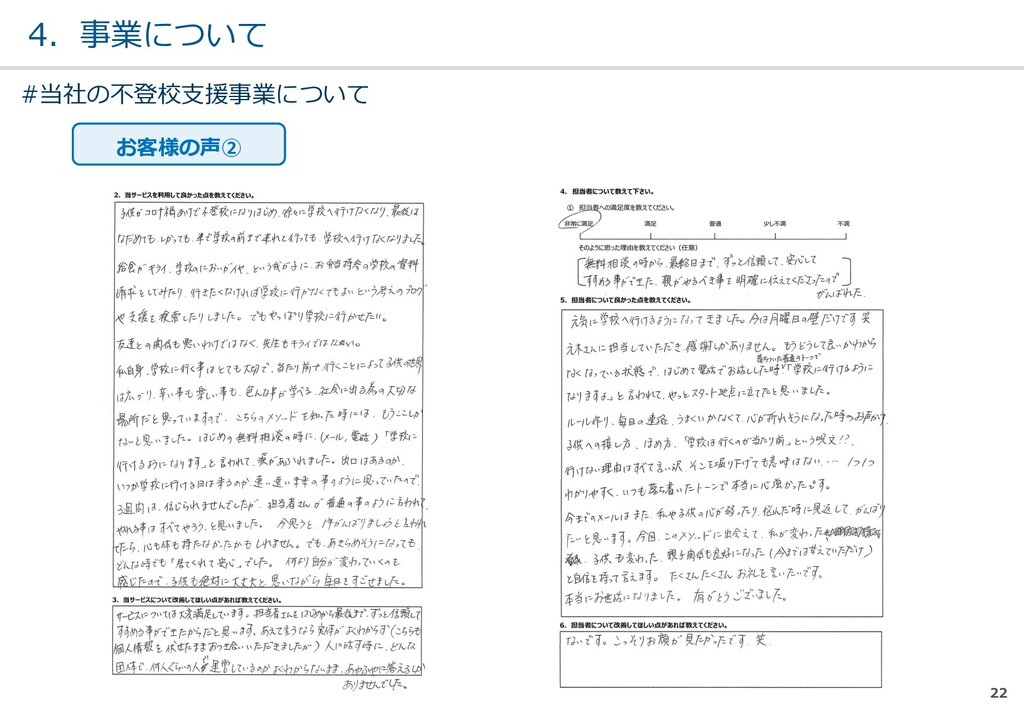 4．事業について
#当社の不登校支援事業について
お客様の声②
2．当サービスを利用して良かった点を教えてください。
子供がコロナ禍あけで不登校になりはじめ、徐々に学校へ行けなくなり、最後は
なだめても、しかっても、車で学校の前まで連れて行っても、学校へ行けなくなりました。
給食がキライ、学校のにおいがイヤ、という我が子に、お弁当持参の学校の資料
請求をしてみたり、行きたくなければ学校に行かなくてもよいという考えのブログ
や支援を検索したりしました。でもやっぱり学校に行かせたい。
友達との関係も悪いわけではなく、先生もキライではない。
私自身、学校に行く事はとても大切で、当たり前で、行くことによって子供の世界
は広がり、辛い事も楽しい事も、色んな事が学べる、社会に出る為の大切な
場所だと思っていますので、こちらのメソッドを知った時には、もうここしか
ないと思いました。はじめの無料相談の時に、(メール、電話)「学校に
行けるようになります。」と言われて、涙があふれました。出口はあるのか、
いつか学校に行ける日は来るのか、遠い遠い未来の事のように思っていたので、
3週間は、信じられませんでしたが、担当者さんが普通の事のように言われて、
やれる事はすべてやろう、と思いました。今思うと、1年がんばりましょうと言われ
てたら、心も体も持たなかったかもしれません。でも、あきらめそうになっても、
どんな時でも「居てくれて安心」でした。何より自分が変わっていくのを
感じたので、子供も絶対に大丈夫と思いながら毎日をすごせました。
3．当サービスについて改善してほしい点があれば教えてください。
サービスについては大変満足しています。担当者さんをはじめから最後まで、ずっと信頼して
すすめる事ができたからだと思います。あえて言うなら実体がよくわからず(こちらも
個人情報を伏せたままおつき合いいただきましたが)人に話す時に、どんな
団体で、何人ぐらいの人が運営しているのかよくわからないまま、あやふやに答えるしか
ありませんでした。
4．担当者について教えて下さい。
① 担当者への満足度を教えてください。
非常に満足 満足 普通 少し不満 不満
そのように思った理由を教えてください（任意）
無料相談の時から、最終日まで、ずっと信頼して、安心して
すすめる事ができた。親がやるべき事を明確に伝えてくださったので
がんばれた。
5．担当者について良かった点を教えてください。
元気に学校へ行けるようになってきました。今は月曜日の壁だけです 笑
元木さんに担当していただき、感謝しかありません。もうどうして良いかわから
落ちついた普通のトーンで
なくなっている状態で、はじめて電話でお話しした時、「学校に行けるように
なりますよ。」と言われて、やっとスタート地点に立てたと思いました。
ルール作り、毎日の連絡、うまくいかなくて、心が折れそうになった時のお声がけ、
子供への接し方、ほめ方、「学校は行くのが当たり前。」という呪文!?、
行けない理由はすべて言い訳、そこを掘り下げても意味はない、… 1つ1つ
わかりやすく、いつも落ち着いたトーンで本当に心強かったです。
今までのメールはまた、私や子供の心が弱ったり、悩んだ時に見返して、がんばり
たいと思います。今回、このメソッドに出会えて、私が変わった、
子供も変わった、親子関係も良好になった(今までは甘えていただけ)
と自信を持って言えます。たくさんたくさんお礼を言いたいです。
本当にお世話になりました。有がとうございました。
6．担当者について改善してほしい点があれば教えてください。
ないです。こっそりお顔が見たかったです、笑、
22